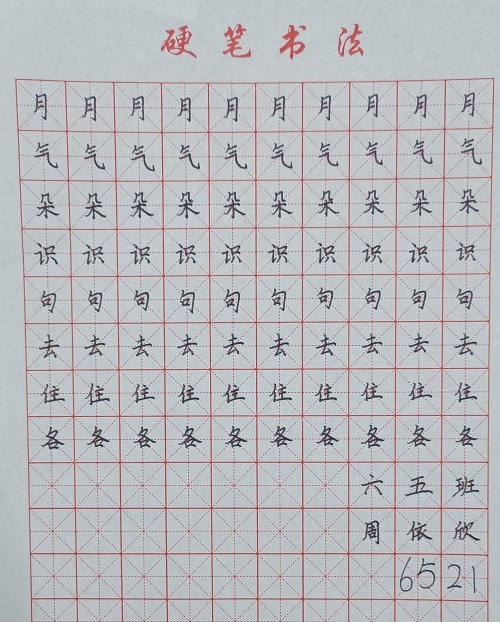 硬笔书法
月月月月月月月月月月
气气气气气气气气气气
朵朵朵朵朵朵朵朵朵朵
识识识识识识识识识识
句句句句句句句句句句
去去去去去去去去去去
住住住住住住住住住住
各各各各各各各各各各
六五班
周依欣
6521